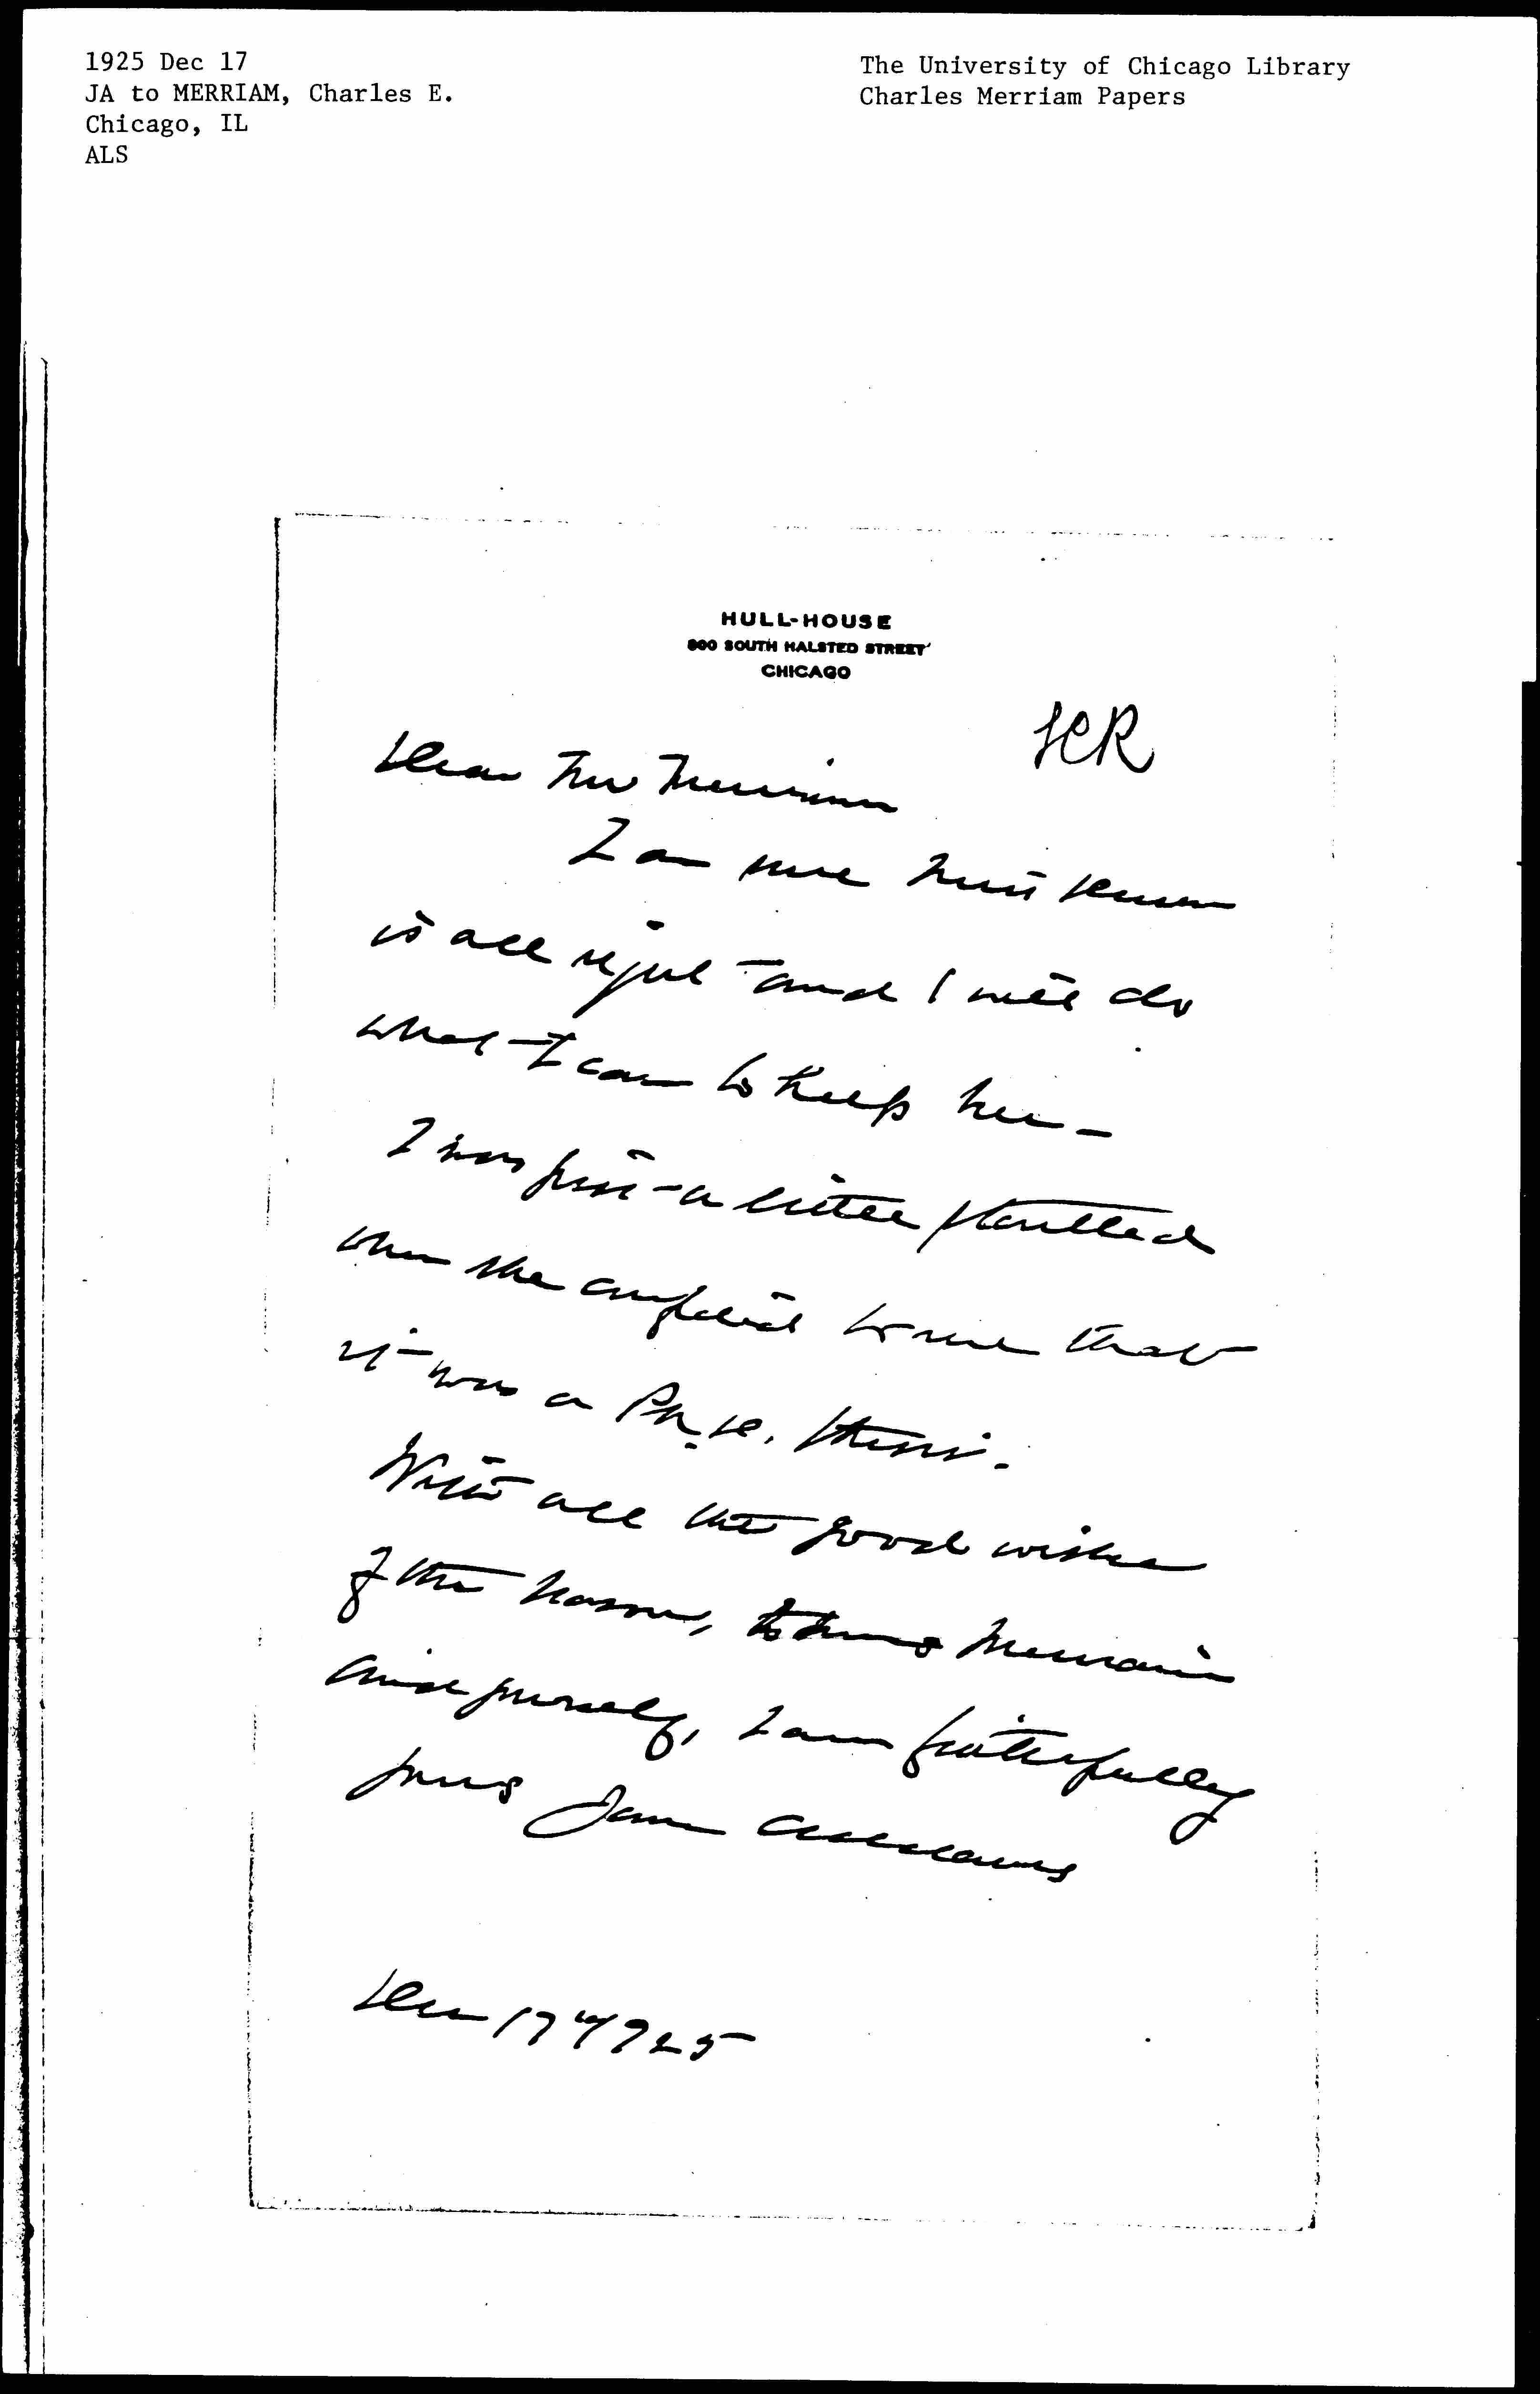 1925 Dec 17
JA to MERRIAM, Charles E.
Chicago, IL
ALS
The University of Chicago Library
Charles Merriam Papers
HULL-HOUSE
800 SOUTH HALSTED STREET
CHICAGO
Dear Mr Merriam
I am sure Miss
is all right and I will do
what I can to help her –
I was just a little startled
when she confided to me that
it was a Ph.D. thesis.
With all the good wishes
of the season, to Mrs Merriam
and yourself, I am faithfully
yours Jane Addams
Dec 17" 1925